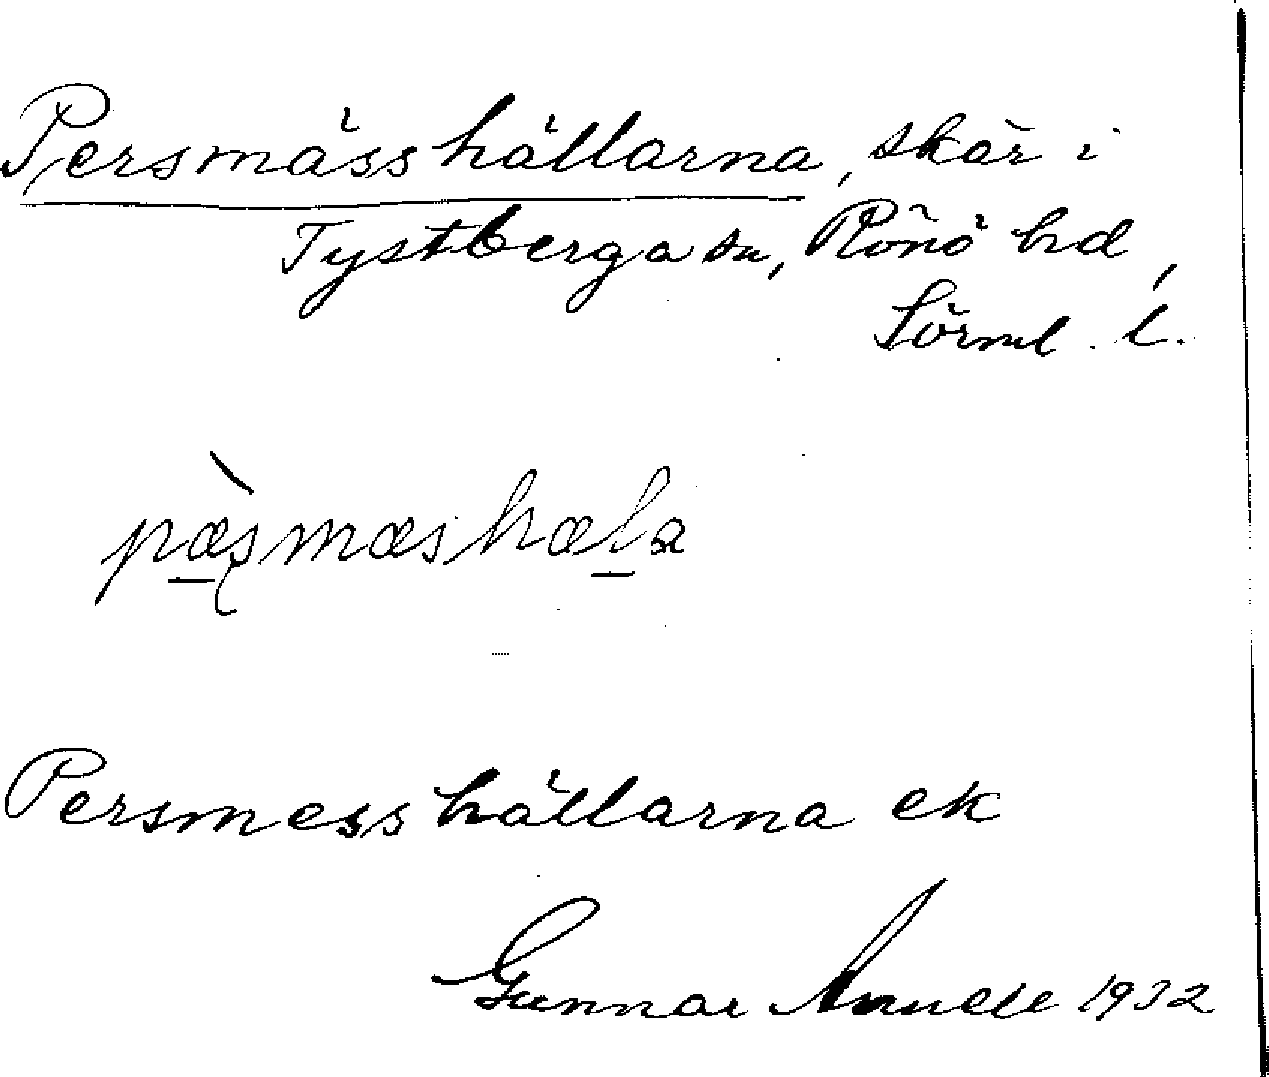 Persmässhällarna, skär i
Tystberga sn, Rönö hd,
Sörml. l.
pæsmæshæla
Persmesshällarna ek
Gunnar 1932